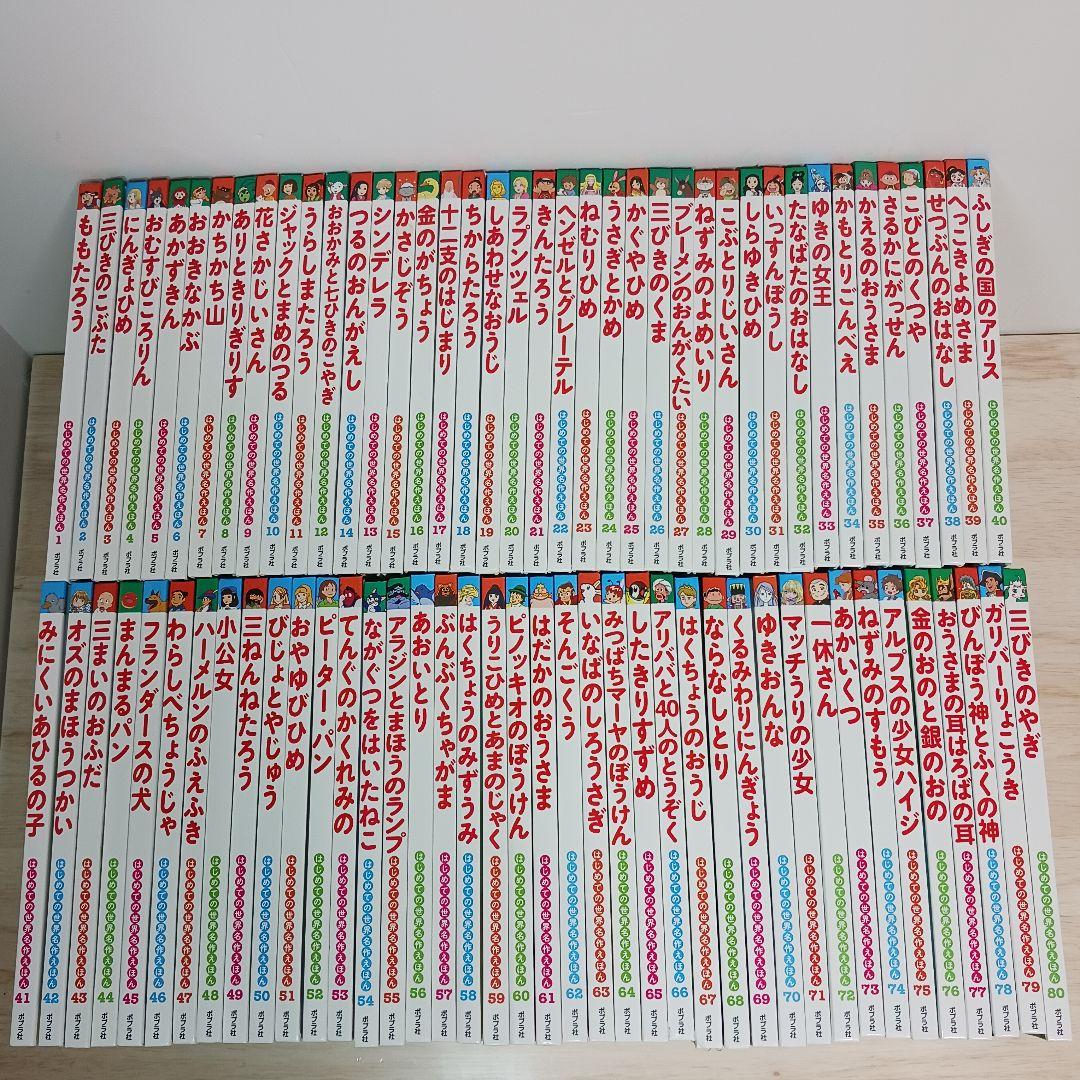 ももたろう はじめての世界名作えほん 1 ポプラ社
三びきのこぶた はじめての世界名作えほん 2 ポプラ社
にんぎょひめ はじめての世界名作えほん 3 ポプラ社
おむすびころりん はじめての世界名作えほん 4 ポプラ社
あかずきん はじめての世界名作えほん 5 ポプラ社
おおきなかぶ はじめての世界名作えほん 6 ポプラ社
かちかち山 はじめての世界名作えほん 7 ポプラ社
ありときりぎりす はじめての世界名作えほん 8 ポプラ社
花さかじいさん はじめての世界名作えほん 9 ポプラ社
ジャックとまめのつる はじめての世界名作えほん 10 ポプラ社
うらしまたろう はじめての世界名作えほん 11 ポプラ社
おおかみと七ひきのこやぎ はじめての世界名作えほん 12 ポプラ社
つるのおんがえし はじめての世界名作えほん 14 ポプラ社
シンデレラ はじめての世界名作えほん 13 ポプラ社
かさじぞう はじめての世界名作えほん 15 ポプラ社
金のがちょう はじめての世界名作えほん 16 ポプラ社
十二支のはじまり はじめての世界名作えほん 17 ポプラ社
ちからたろう はじめての世界名作えほん 18 ポプラ社
しあわせなおうじ はじめての世界名作えほん 19 ポプラ社
ラプンツェル はじめての世界名作えほん 20 ポプラ社
きんたろう はじめての世界名作えほん 21 ポプラ社
ヘンゼルとグレーテル はじめての世界名作えほん 22 ポプラ社
ねむりひめ はじめての世界名作えほん 23 ポプラ社
うさぎとかめ はじめての世界名作えほん 24 ポプラ社
かぐやひめ はじめての世界名作えほん 25 ポプラ社
三びきのくま はじめての世界名作えほん 26 ポプラ社
ブレーメンのおんがくたい はじめての世界名作えほん 27 ポプラ社
ねずみのよめいり はじめての世界名作えほん 28 ポプラ社
こぶとりじいさん はじめての世界名作えほん 29 ポプラ社
しらゆきひめ はじめての世界名作えほん 30 ポプラ社
いっすんぼうし はじめての世界名作えほん 31 ポプラ社
たなばたのおはなし はじめての世界名作えほん 32 ポプラ社
ゆきの女王 はじめての世界名作えほん 33 ポプラ社
かもとりごんべえ はじめての世界名作えほん 34 ポプラ社
かえるのおうさま はじめての世界名作えほん 35 ポプラ社
さるかにがっせん はじめての世界名作えほん 36 ポプラ社
こびとのくつや はじめての世界名作えほん 37 ポプラ社
せつぶんのおはなし はじめての世界名作えほん 38 ポプラ社
へっこきよめさま はじめての世界名作えほん 39 ポプラ社
ふしぎの国のアリス はじめての世界名作えほん 40 ポプラ社
みにくいあひるの子 はじめての世界名作えほん 41 ポプラ社
オズのまほうつかい はじめての世界名作えほん 42 ポプラ社
三まいのおふだ はじめての世界名作えほん 43 ポプラ社
まんまるパン はじめての世界名作えほん 44 ポプラ社
フランダースの犬 はじめての世界名作えほん 45 ポプラ社
わらしべちょうじゃ はじめての世界名作えほん 46 ポプラ社
ハーメルンのふえふき はじめての世界名作えほん 47 ポプラ社
小公女 はじめての世界名作えほん 48 ポプラ社
三ねんねたろう はじめての世界名作えほん 49 ポプラ社
びじょとやじゅう はじめての世界名作えほん 50 ポプラ社
おやゆびひめ はじめての世界名作えほん 51 ポプラ社
ピーター・パン はじめての世界名作えほん 52 ポプラ社
てんぐのかくれみの はじめての世界名作えほん 53 ポプラ社
ながぐつをはいたねこ はじめての世界名作えほん 54 ポプラ社
アラジンとまほうのランプ はじめての世界名作えほん 55 ポプラ社
あおいとり はじめての世界名作えほん 56 ポプラ社
ぶんぶくちゃがま はじめての世界名作えほん 57 ポプラ社
はくちょうのみずうみ はじめての世界名作えほん 58 ポプラ社
うりこひめとあまのじゃく はじめての世界名作えほん 59 ポプラ社
ピノッキオのぼうけん はじめての世界名作えほん 60 ポプラ社
はだかのおうさま はじめての世界名作えほん 61 ポプラ社
そんごくう はじめての世界名作えほん 62 ポプラ社
いなばのしろうさぎ はじめての世界名作えほん 63 ポプラ社
みつばちマーヤのぼうけん はじめての世界名作えほん 64 ポプラ社
したきりすずめ はじめての世界名作えほん 65 ポプラ社
アリババと40人のとうぞく はじめての世界名作えほん 66 ポプラ社
はくちょうのおうじ はじめての世界名作えほん 67 ポプラ社
ならなしとり はじめての世界名作えほん 68 ポプラ社
くるみわりにんぎょう はじめての世界名作えほん 69 ポプラ社
ゆきおんな はじめての世界名作えほん 70 ポプラ社
マッチうりの少女 はじめての世界名作えほん 71 ポプラ社
一休さん はじめての世界名作えほん 72 ポプラ社
あかいくつ はじめての世界名作えほん 73 ポプラ社
ねずみのすもう はじめての世界名作えほん 74 ポプラ社
アルプスの少女ハイジ はじめての世界名作えほん 75 ポプラ社
金のおのと銀のおの はじめての世界名作えほん 76 ポプラ社
おうさまの耳はろばの耳 はじめての世界名作えほん 77 ポプラ社
びんぼう神とふくの神 はじめての世界名作えほん 78 ポプラ社
ガリバーりょこうき はじめての世界名作えほん 79 ポプラ社
三びきのやぎ はじめての世界名作えほん 80 ポプラ社